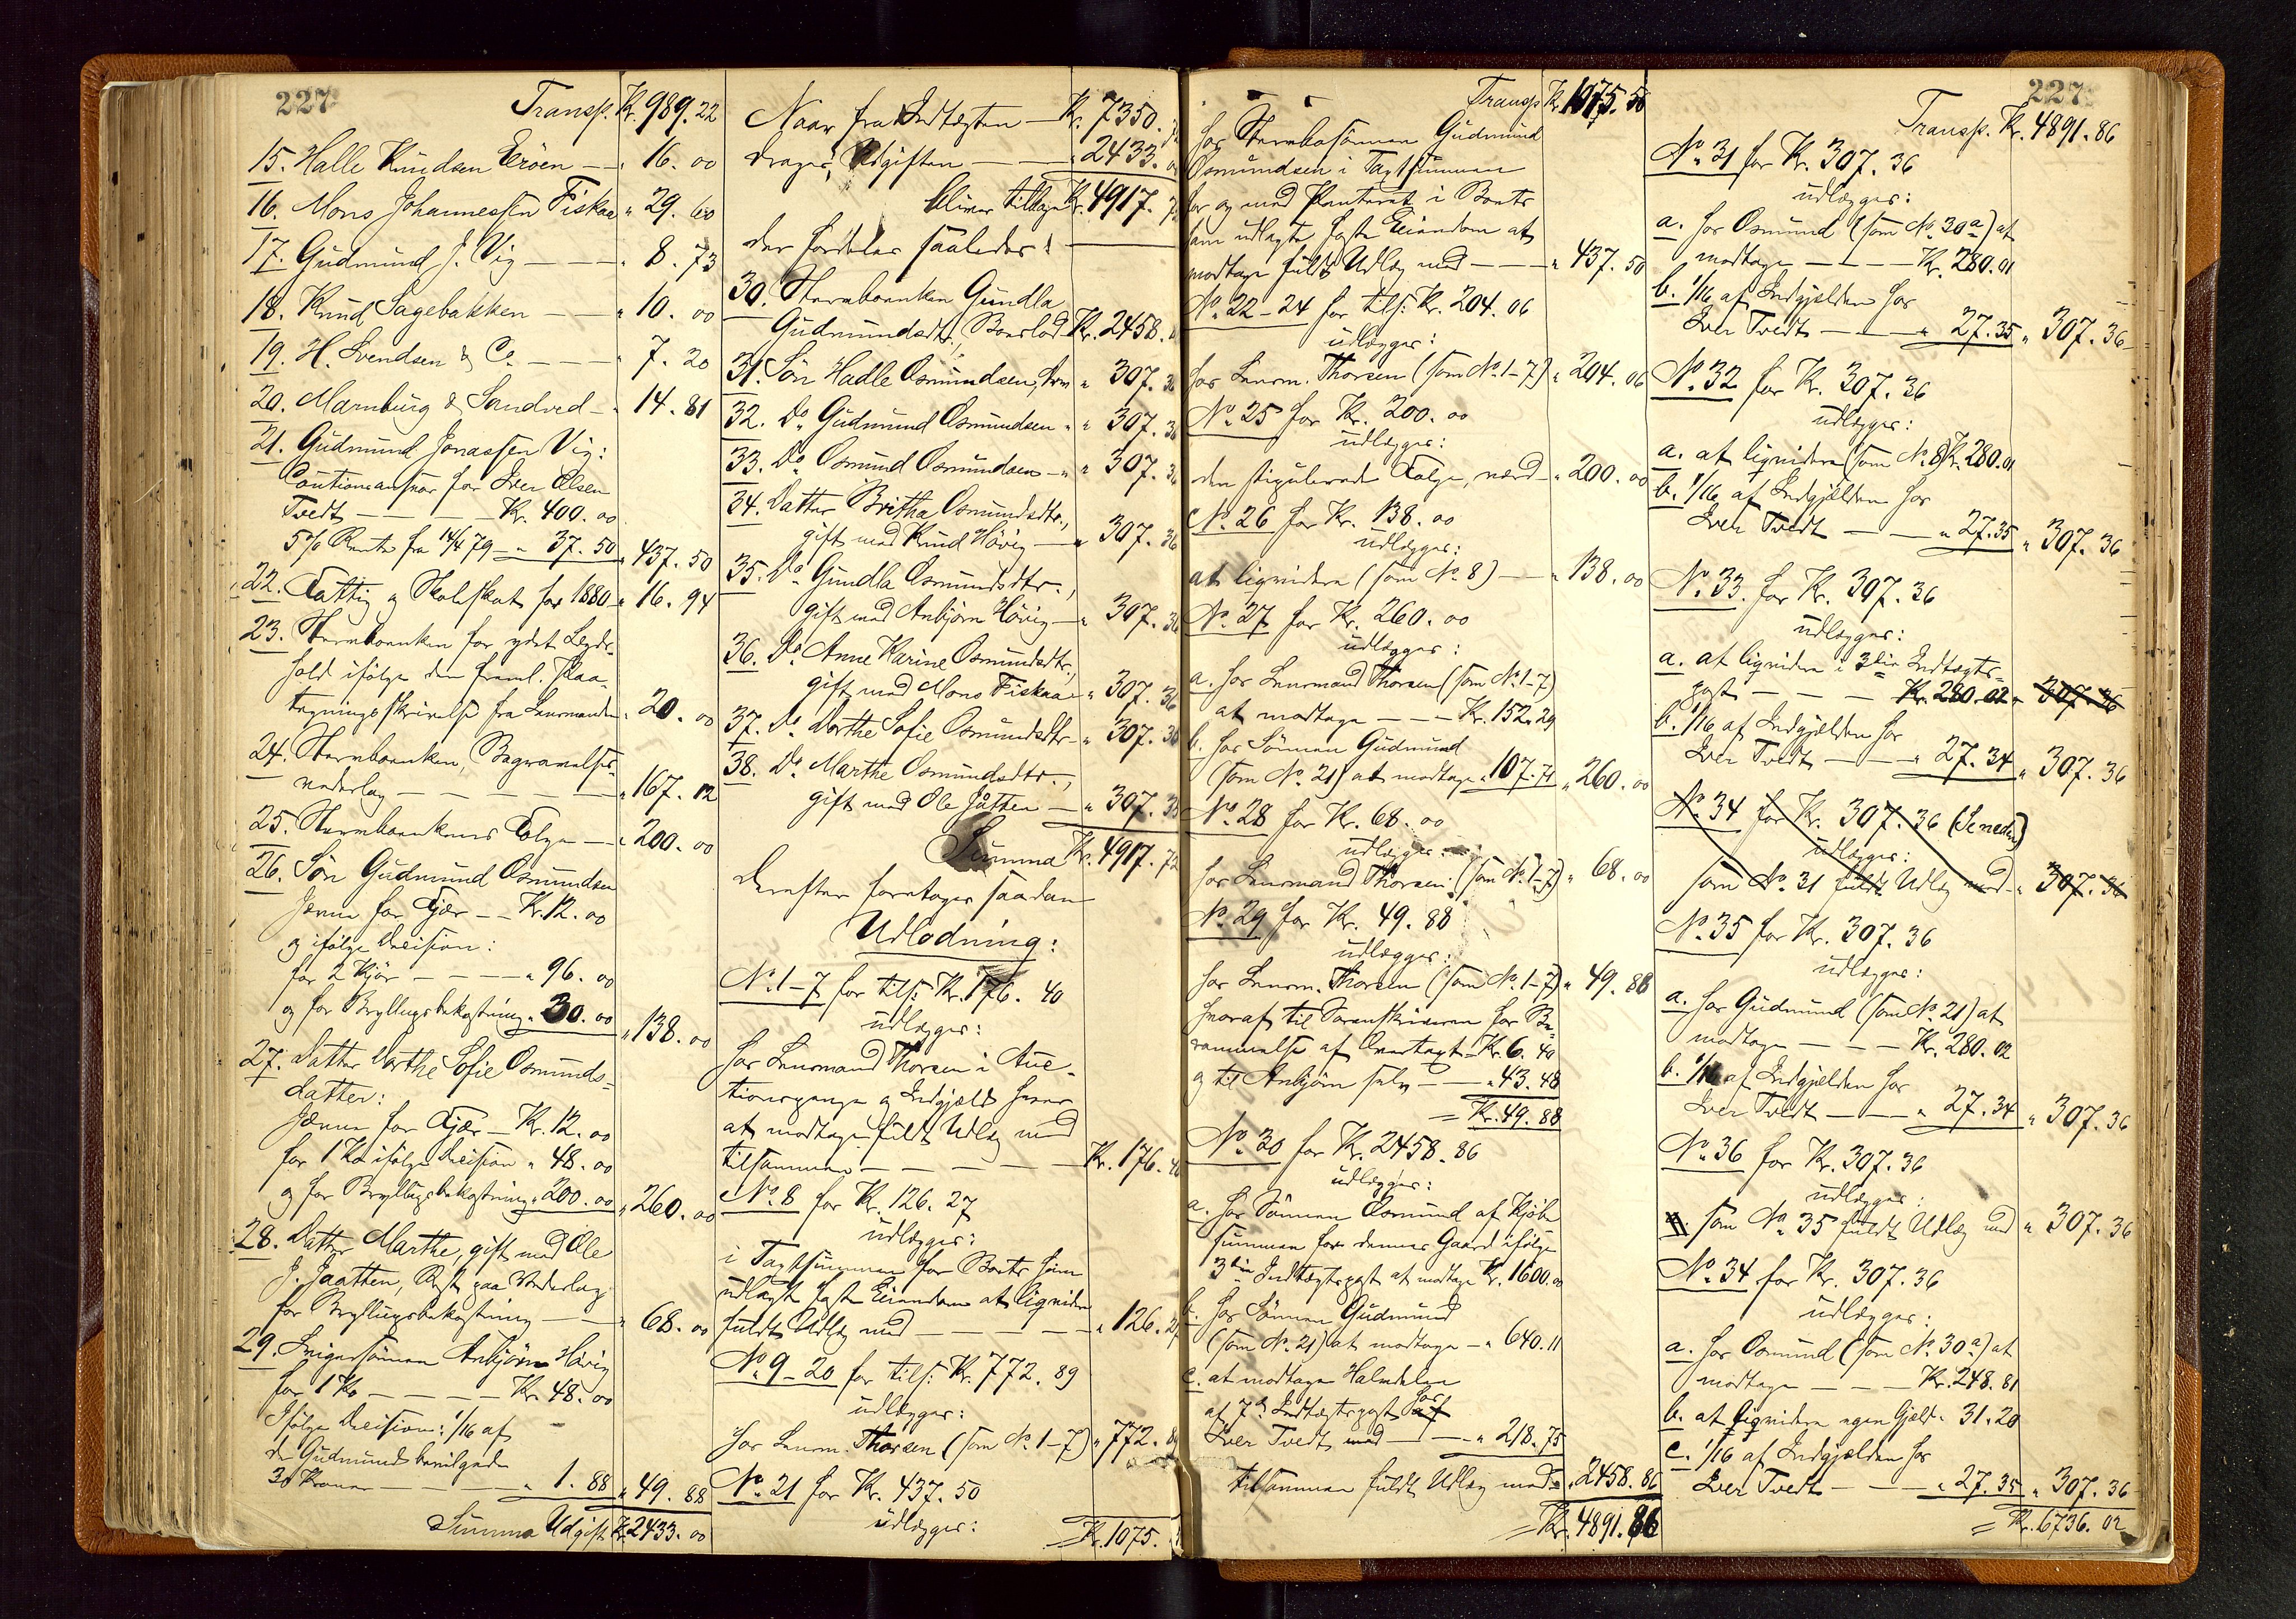 227
Transp. Kr. 989. 22
15. Halle Knudsen Eröen — " 16. 00
16. Mons Johannessen Fiskaa " 29. 60
17. Gudmund J. Vig — — " 8. 73
18. Knud Sagebakken — — " 10. 00
19. H. Svendsen & Co. — — " 7. 20
20. Marnburg & Sandved — " 14. 81
21. Gudmund Jonassen Vig:
Cautionsansvar for Iver Olsen
Tvedt — — — Kr. 400. 00
5% Rente fra 14/4 79 — " 37. 50 " 437. 50
22. Fattig og Skoleskat for 1880 " 16. 94
23. Stervboenken for ydet Lægds-
hold ifølge den freml. Paa-
tegningsskrivelse fra Lensmanden " 20. 00
24. Stervboenken, Begravelses-
vederlag — — — — " 167. 12
25. Stervboenkens Følge — " 200. 00
26. Søn Gudmund Osmundsen
Hjemmefor Kjær — — Kr. 12. 00
og ifølge Decision:
for 2 Kjör — — — " 96. 00
og for Bryllupsbekostning " 30. 00 " 138. 00
27. Datter Dorthe Sofie Osmunds-
datter:
Kr. 12. 00
for 1 Ko ifølge Decision " 48. 00
og for Bryllupsbekostning " 200. 00 " 260. 00
28. Datter Marthe, gift med Ole
J. Jaatten, Rest paa Vederlag
for Bryllupsbekostning — " 68. 00
29. Svigersønnen Anbjørn Høvig
for 1 Ko — — — Kr. 48. 00
Ifølge Decision: 1/16 af
de Gudmund bevilgede
30 Kroner — — — " 1. 88 " 49. 88
Summa Udgift Kr. 2433. 00
Naar fra Indtægten — Kr. 7350.
drages Udgiften — — " 2433.
bliver tilbage Kr. 4917. 7
der fordeles saaledes:
30. Stervboenken Gundla
Gudmundsdtr., Boeslod Kr. 2458.
31. Søn Hadle Osmundsen, Arv " 307. 36
32. Do. Gudmund Osmundsen " " 307. 36
33. Do. Osmund Osmundsen — " " 307. 36
34. Datter Britha Osmundsdtr.,
gift med Knud Høvig — " 307. 36
35. Do. Gundla Osmundsdtr.,
gift med Anbjørn Høvig — " 307. 36
36. Do. Anne Karine Osmundsdtr.,
gift med Mons Fiskaa " 307. 36
37. Do. Dorthe Sofie Osmundsdtr. " 307. 36
38. Do. Marthe Osmundsdtr.,
gift med Ole Jåtten — " 307. 35
Summa Kr. 4917. 72
Derefter foretages saadan
Udlodning:
No. 1–7 for tils: Kr. 176. 40
udlægges:
hos Lensmand Thorsen i Auc-
tionspenge og Indgjæld hever
at modtage fuldt Udlæg med
tilsammen — — — — Kr. 176. 40
No. 8 for Kr. 126. 27
udlægges:
i Taxtsummen for Boets som
udlagt faste Eiendom at liqvidere
fuldt Udlæg med — — — " 126. 27
No. 9–20 for tils: Kr. 772. 89
udlægges:
hos Lensm. Thorsen (som No. 1–7) " 772. 89
No. 21 for Kr. 437. 50
udlægges:
= Kr. 1075.
Transp. Kr. 1075. 56
hos Stervbosønnen Gudmund
Osmundsen i Taxtsummen
for og med Panteret i Boets
som udlagte faste Eiendom at
modtage fuldt Udlæg med — — " 437. 50
No. 22–24 for tils: Kr. 204. 06
udlægges:
hos Lensm. Thorsen (som No. 1–7) " 204. 06
No. 25 for Kr. 200. 00
udlægges:
den stipulerede Følge, værd — " 200. 00
No. 26 for Kr. 138. 00
udlægges:
at liqvidere (som No. 8) — " 138. 00
No. 27 for Kr. 260. 00
udlægges:
a. hos Lensmand Thorsen (som No. 1–7)
at modtage — — — Kr. 152. 29
b. hos Sønnen Gudmund
(som No. 21) at modtage " 107. 71 " 260. 00
No. 28 for Kr. 68. 00
udlægges:
hos Lensmand Thorsen (som No. 1–7) " 68. 00
No. 29 for Kr. 49. 88
udlægges:
hos Lensm. Thorsen (som No. 1–7) " 49. 88
hvoraf til Sorenskriveren for Be-
rammelse af Overtaxt — Kr. 6. 40
og til Anbjørn selv — — " 43. 48
= Kr. 49. 88
No. 30 for Kr. 2458. 86
udlægges:
a. hos Sønnen Osmund af Kjøbe
summen for dennes Gaard ifølge
3die Indtægtspost at modtage Kr. 1600. 00
b. hos Sønnen Gudmund
(som No. 21) at modtage — " 640. 11
c. at modtage Halvdelen
af 7de Indtægtspost hos af
Iver Tvedt med — — " 218. 75
tilsammen fuldt Udlæg med " 2458. 86
= Kr. 4891. 86
227
Transp. Kr. 4891. 86
No. 31 for Kr. 307. 36
udlægges:
a. hos Osmund (som No. 30 a) at
modtage — — — Kr. 280. 01
b. 1/16 af Indgjælden hos
Iver Tvedt — — — " 27. 35 " 307. 36
No. 32 for Kr. 307. 36
udlægges:
a. at liqvidere (som No. 8) Kr. 280. 01
b. 1/16 af Indgjælden hos
Iver Tvedt — — " 27. 35 " 307. 36
No. 33 for Kr. 307. 36
udlægges:
a. at liqvidere i 3die Indtægts-
post — — — Kr. 280. 02 " 307. 36
b. 1/16 af Indgjælden hos
Iver Tvedt — — " 27. 34 " 307. 36
No. 34 for Kr. 307. 36 (Se neden)
udlægges:
som No. 31 fuldt Udlæg med " 307. 36
No. 35 for Kr. 307. 36
udlægges:
a. hos Gudmund (som No. 21) at
modtage — — — Kr. 280. 02
b. 1/16 af Indgjælden hos
Iver Tvedt — — — " 27. 34 " 307. 36
No. 36 for Kr. 307. 36
udlægges:
som No. 35 fuldt Udlæg med " 307. 36
No. 34 for Kr. 307. 36
udlægges:
a. hos Osmund (som No. 30 a) at
modtage — — — Kr. 248. 81
b. at liqvidere egen Gjæld " 31. 20
c. 1/16 af Indgjælden hos
Iver Tvedt — — — " 27. 35 " 307. 36
= Kr. 6736. 02